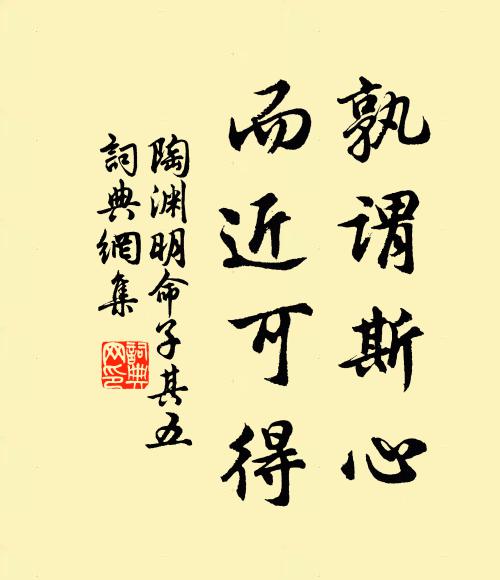 孰謂斯心
而近可得
陶淵明命子其五
詞典網集
詞典
网印